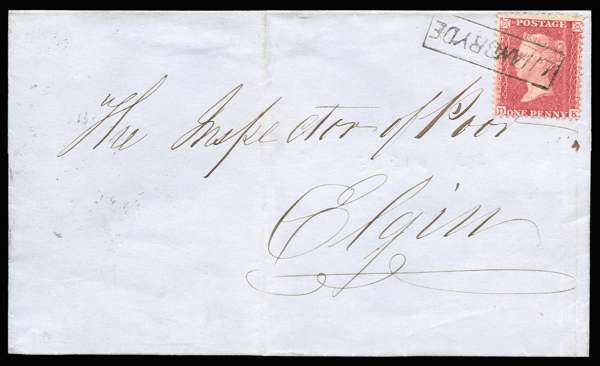 LHANBRYDE
POSTAGE
ONE PENNY
The Inspector of Poor
Elgin